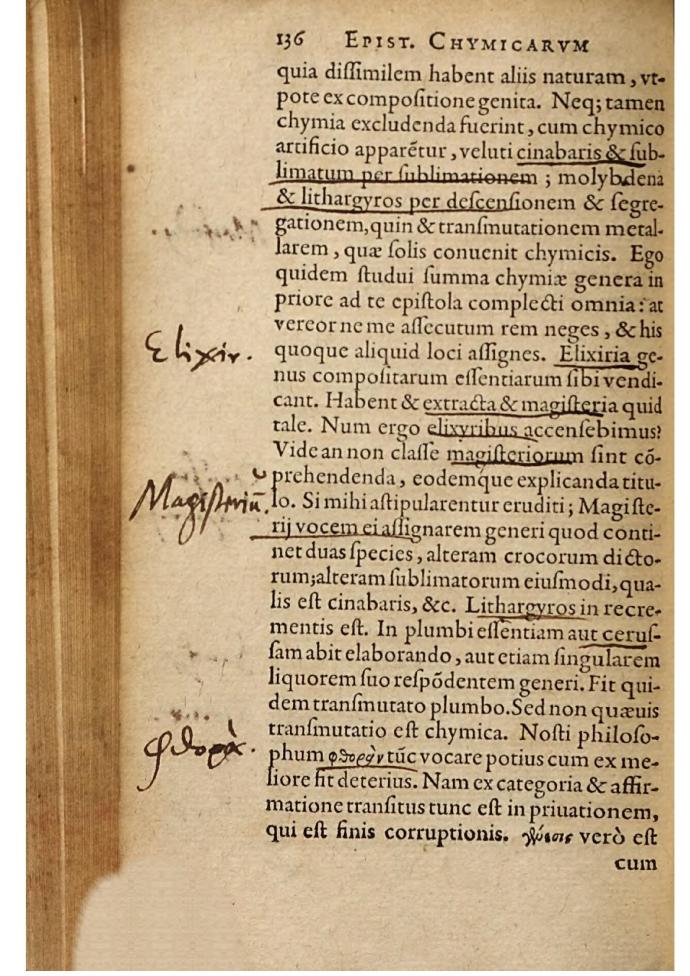 136 EPIST. CHYMICARVM
quia dissimilem habent aliis naturam, vt-
pote ex compositione genita. Neq; tamen
chymia excludenda fuerint, cum chymico
artificio apparẽtur, veluti cinabaris & sub-
limatum per sublimationem ; molybdena
& lithargyros per descensionem & segre-
gationem, quin & transmutationem metal-
larem, quæ solis conuenit chymicis. Ego
quidem studui summa chymiæ genera in
priore ad te epistola complecti omnia: at
vereor ne me assecutum rem neges, & his
Elixir.
quoque aliquid loci assignes. Elixiria ge-
nus compositarum essentiarum sibi vendi-
cant. Habent & extracta & magisteria quid
tale. Num ergo elixyribus accensebimus?
Vide an non classe magisteriorum sint cõ-
prehendenda, eodemque explicanda titu-
Magisteriũ.
lo. Si mihi astipularentur eruditi; Magiste-
rij vocem ei assignarem generi quod conti-
net duas species, alteram crocorum dicto-
rum; alteram sublimatorum eiusmodi, qua-
lis est cinabaris, &c. Lithargyros in recre-
mentis est. In plumbi essentiam aut cerus-
sam abit elaborando, aut etiam singularem
liquorem suo respõdentem generi. Fit qui-
dem transmutato plumbo. Sed non quæuis
transmutatio est chymica. Nosti philoso-
φθορὰ.
phum φθορὰν tũc vocare potius cum ex me-
liore fit deterius. Nam ex categoria & affir-
matione transitus tunc est in priuationem,
qui est finis corruptionis. γένεσις verò est
cum